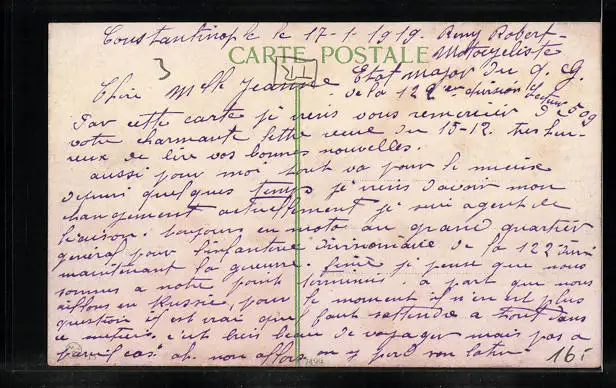 Constantinople le 17-1-1919. Remy Robert-
Motocycliste
CARTE POSTALE
3
Chère Mlle Jeanne Etat major du q. G.
de la 122 eme division Secteur 509
Par cette carte je viens vous remercier de
votre charmante lettre reçue du 15-12. très heu-
reux de lire vos bonnes nouvelles.
aussi pour moi tout va pour le mieux
depuis quelques temps je viens d'avoir mon
changement actuellement je suis agent de
liaison: toujours en moto au grand quartier
général pour l'infanterie Divisionnaire de la 122 divi
maintenant la guerre finie je pense que nous
sommes a notre point terminus. a part que nous
allons en Russie, pour le moment il n'en est plus
question il est vrai que faut s'attendre a tout dans
ce métier, c'est bien beau de voyager mais pas a
pareil cas. ah. non alors on y perd son latin.
16.-